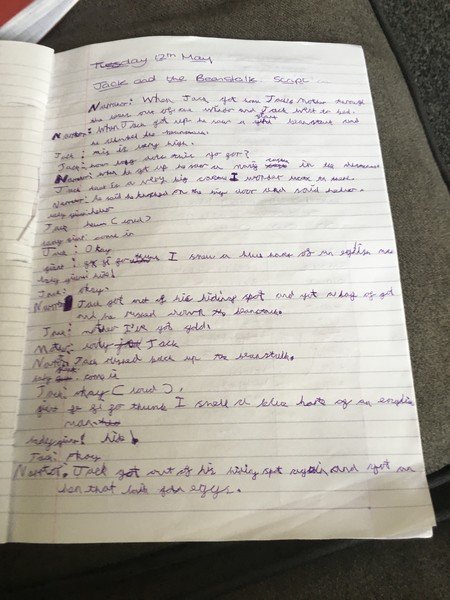 Tuesday 12th May
Jack and the Beanstalk. Script
Narrator: When Jack got home Jacks mother threw
the out of the window and Jack went to bed.
Narrator: When Jack got up he saw a giant beanstalk and
he climbed the beanstalk.
Jack: this is very high.
Jack: how way dose this go?
Narrator: when he got up he saw a castle in the distance
Jack: that is a very big castle I wonder
Narrator: he knocked on the big door and said hello.
lady giant: hello
Jack: hello (loud)
lady giant: come in
Jack: Okay
giant: fe fi fo I smell a blue of an english man
lady giant: hide!
Jack: okay.
Narrator: Jack got out of his hiding spot and got a bag of gold
and he rushed down the beanstalk.
Jack: mother I've got gold!
Mother: Jack
Narrator: Jack rushed back up the beanstalk.
lady giant: come in
Jack: okay (loud).
fe fi fo I smell a blue of an english
man
lady giant: hide!
Jack: Okay
Narrator: Jack got out of his hiding spot again and got an
hen that gold eggs.